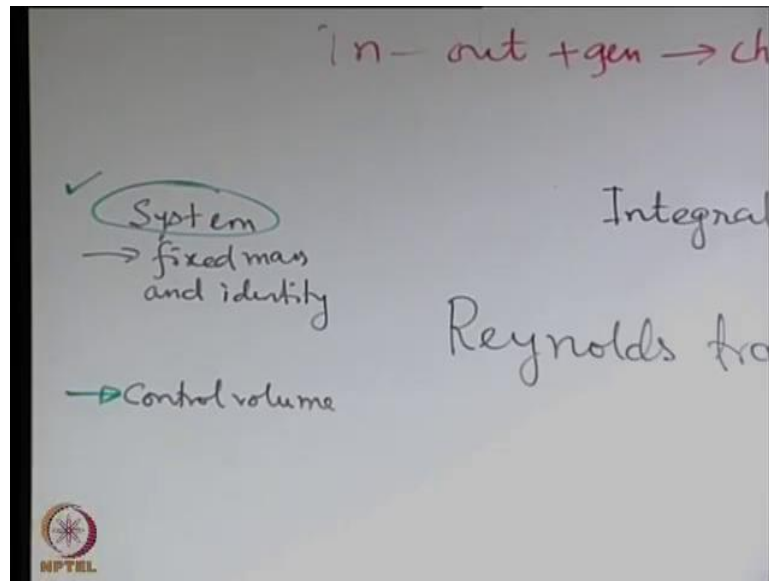 In - out + gen → ch
✓ System
→ fixed mass
and identity
Integral
Reynolds tra
→ Control volume
NPTEL